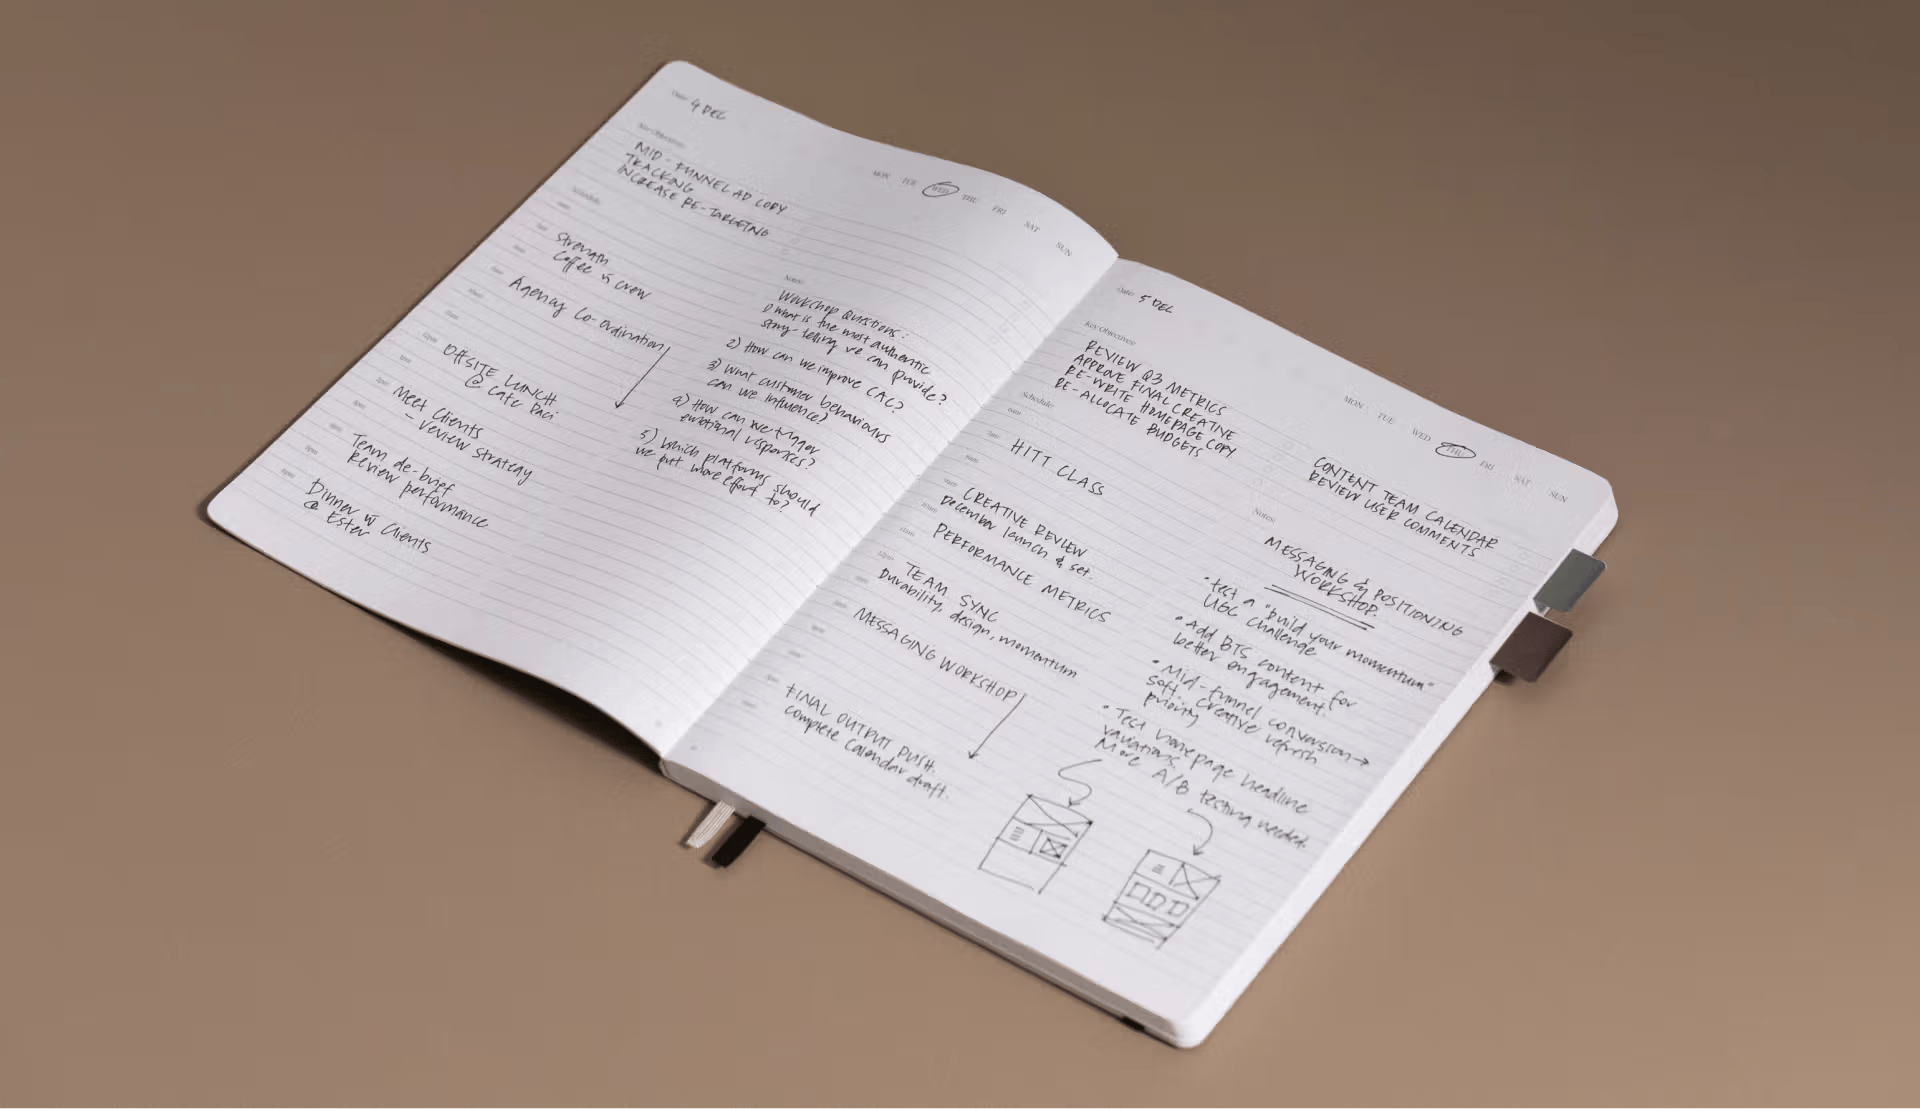 Date: 4 DEC
MON TUE WED THU FRI SAT SUN
Key Objectives:
MID-FUNNEL AD COPY
TRACKING
INCREASE RE-TARGETING
Schedule:
Strength
Coffee w crew
Agency Co-ordination
OFFSITE LUNCH
@ Cafe Paci
Meet Clients
- review strategy
Team de-brief
Review performance
Dinner w Clients
@ Ester
Notes:
Workshop Questions:
1) What is the most authentic
story-telling we can provide?
2) How can we improve CAC?
3) What customer behaviours
can we influence?
4) How can we trigger
emotional responses?
5) Which platforms should
we put more effort to?
Date: 5 DEC
MON TUE WED THU FRI SAT SUN
Key Objectives:
REVIEW Q3 METRICS
APPROVE FINAL CREATIVE
RE-WRITE HOMEPAGE COPY
RE-ALLOCATE BUDGETS
CONTENT TEAM CALENDAR
REVIEW USER COMMENTS
Schedule:
HITT CLASS
CREATIVE REVIEW
December launch & set.
PERFORMANCE METRICS
TEAM SYNC
Durability, design, momentum
MESSAGING WORKSHOP
FINAL OUTPUT PUSH.
Complete Calendar draft.
Notes:
MESSAGING & POSITIONING
WORKSHOP.
• test a "build your momentum"
UGC challenge
• Add BTS content for
better engagement.
• Mid-funnel conversion →
soft. Creative refresh
priority
• Test homepage headline
variations.
More A/B testing needed.